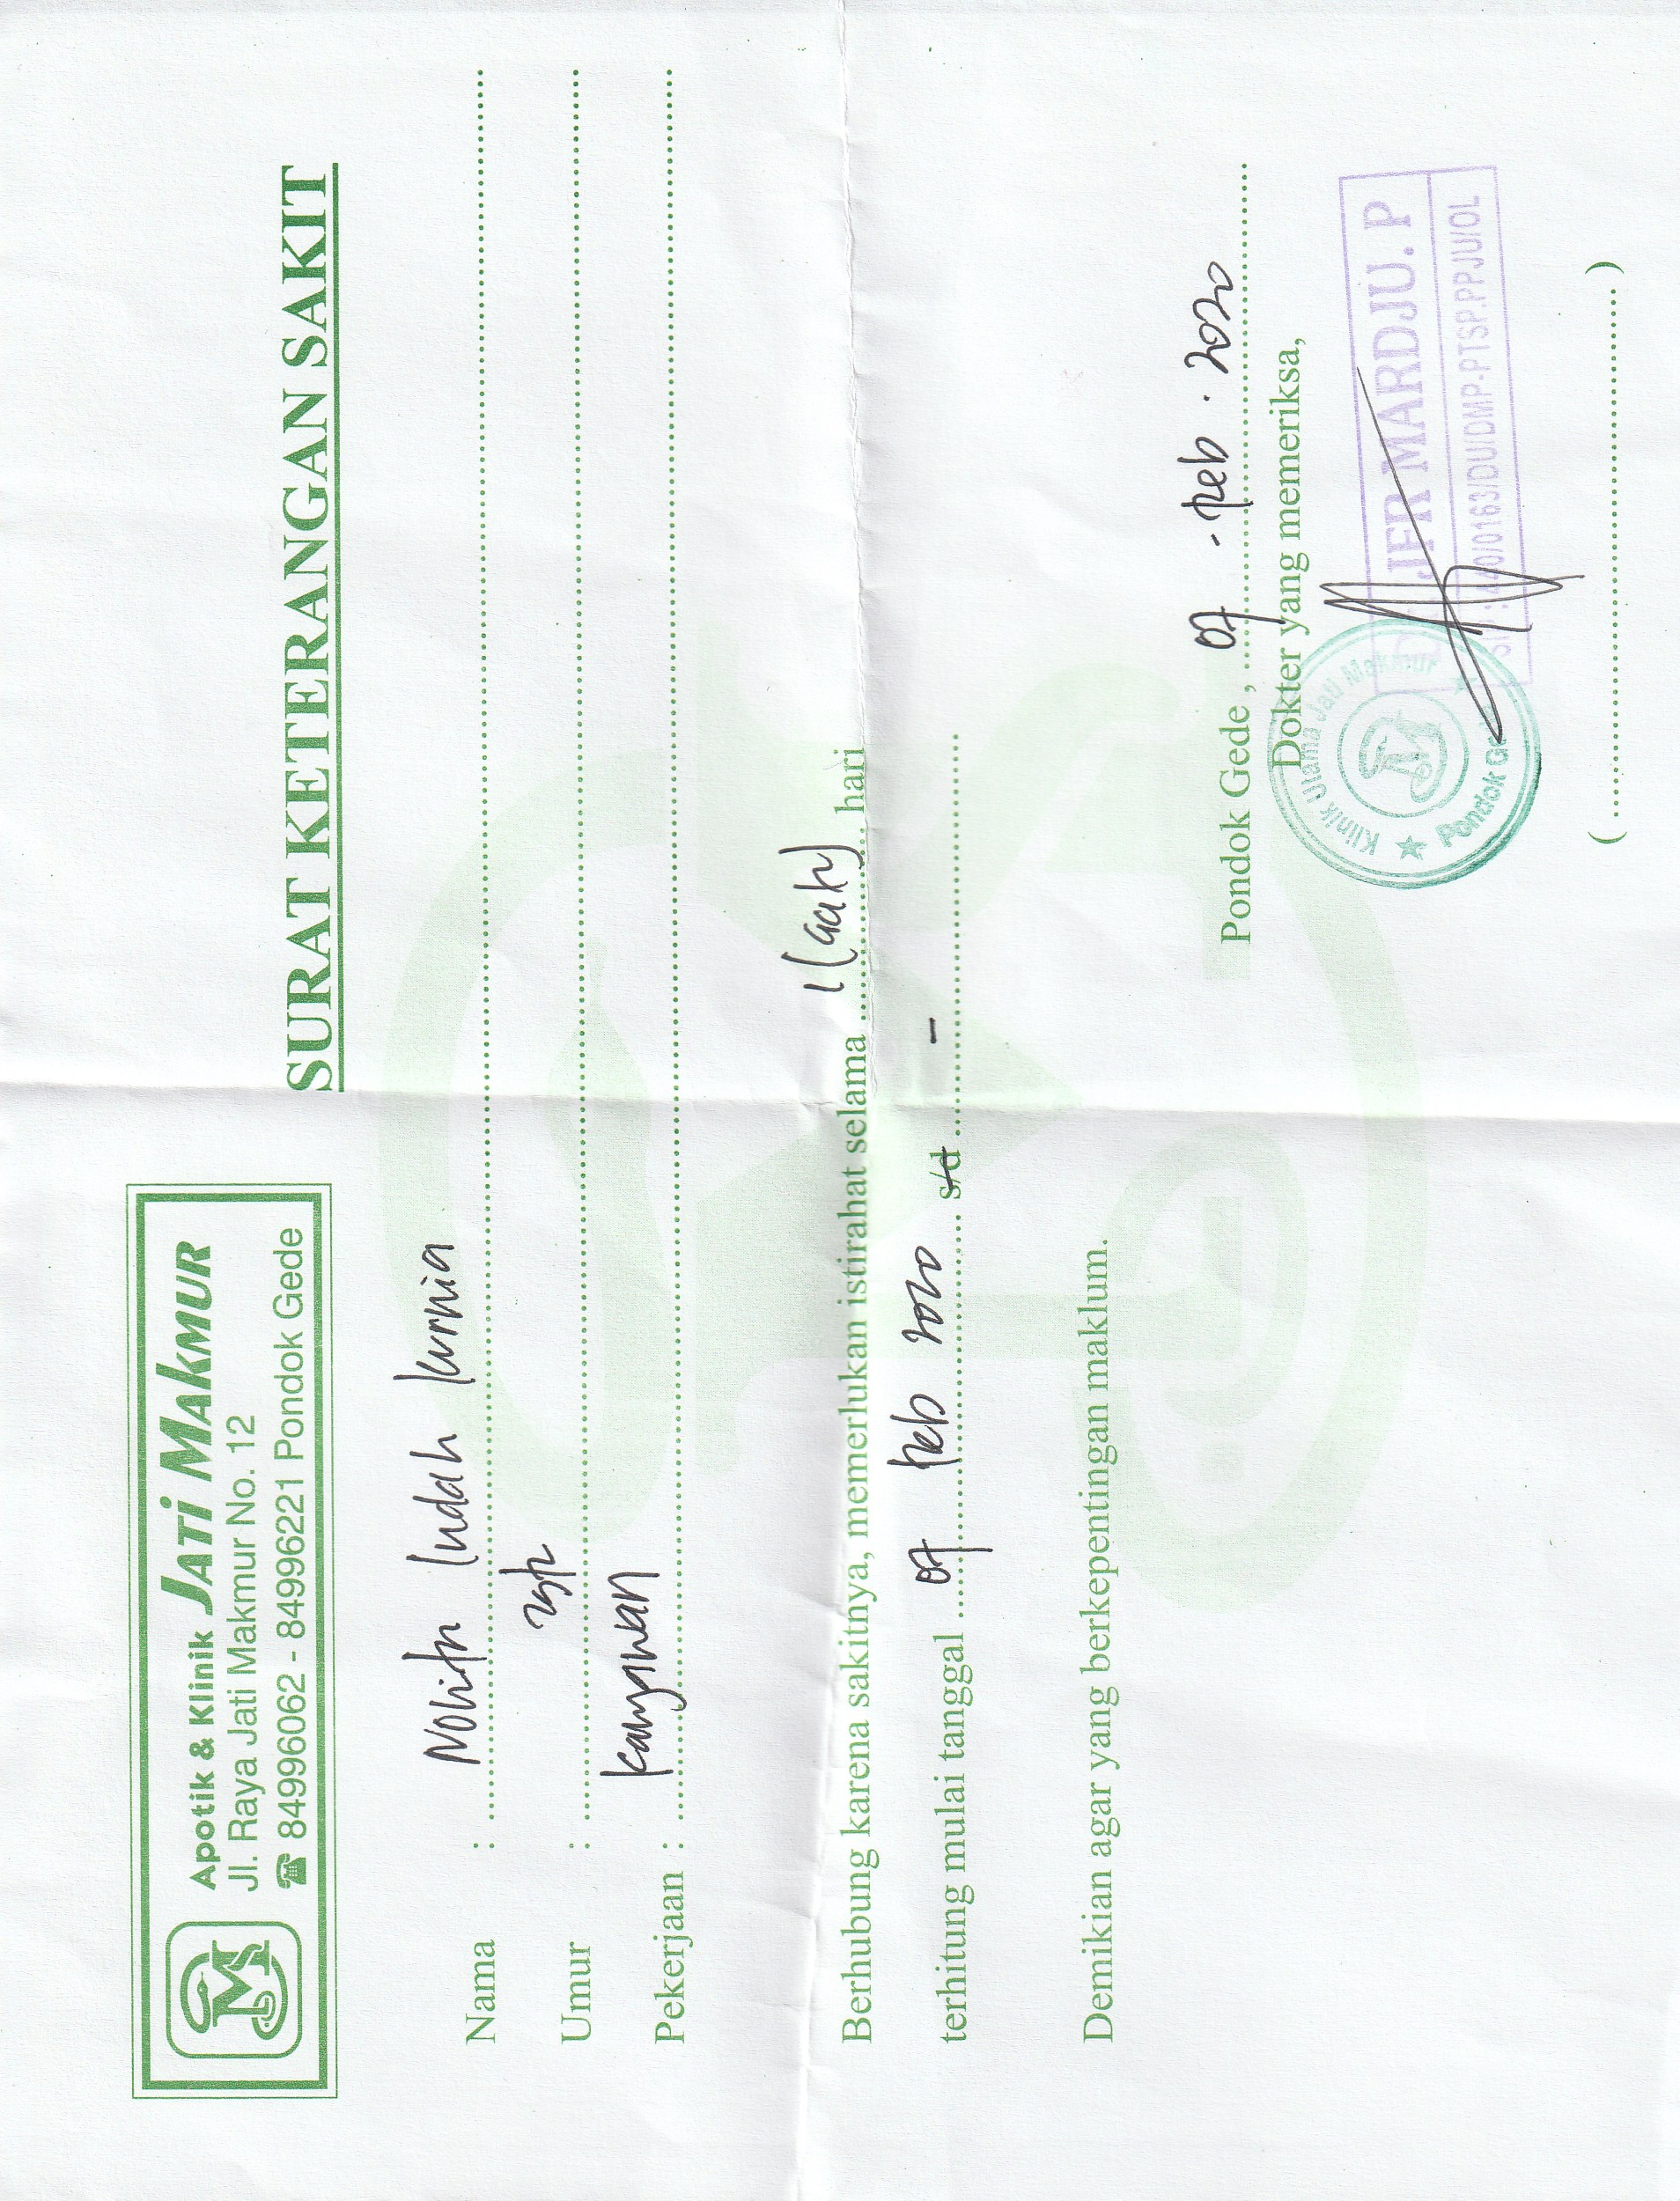 Apotik & Klinik JATI MAKMUR
Jl. Raya Jati Makmur No. 12
☎ 84996062 - 84996221 Pondok Gede
SURAT KETERANGAN SAKIT
Nama : Indah Kurnia
Umur :
Pekerjaan : Karyawan
Berhubung karena sakitnya, memerlukan istirahat selama 1 (satu) hari
terhitung mulai tanggal 07 Feb 2020 s/d -
Demikian agar yang berkepentingan maklum.
Pondok Gede, 07 - Feb . 2020
Dokter yang memeriksa,
JFR MARDJU. P
/0163/DU/DMP-PTSP.PPJU/OL
Klinik Utama Jati Makmur
Pondok
( )